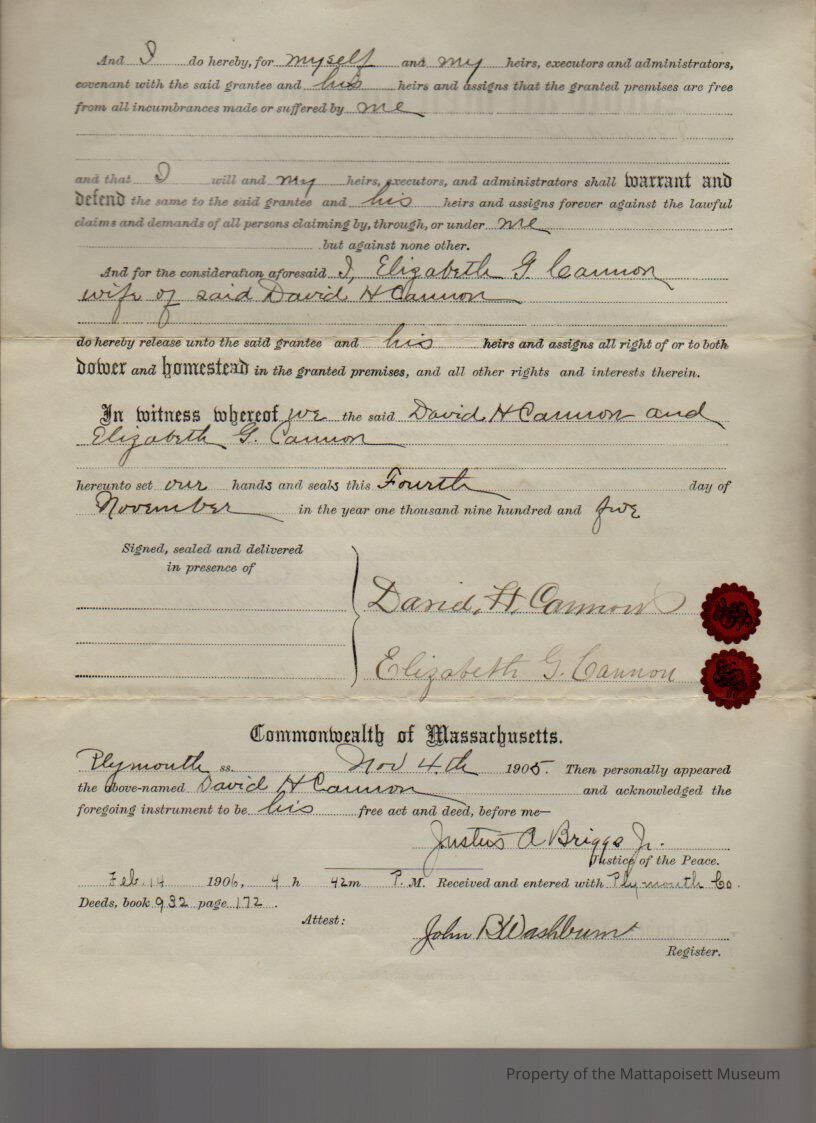 And I do hereby, for myself and my heirs, executors and administrators,
covenant with the said grantee and his heirs and assigns that the granted premises are free
from all incumbrances made or suffered by me
and that I will and my heirs, executors, and administrators shall warrant and
defend the same to the said grantee and his heirs and assigns forever against the lawful
claims and demands of all persons claiming by, through, or under me
but against none other.
And for the consideration aforesaid I, Elizabeth G Cannon
wife of said David H Cannon
do hereby release unto the said grantee and his heirs and assigns all right of or to both
dower and homestead in the granted premises, and all other rights and interests therein.
In witness whereof we the said David H Cannon and
Elizabeth G. Cannon
hereunto set our hands and seals this Fourth day of
November in the year one thousand nine hundred and five
Signed, sealed and delivered
in presence of
David, H. Cannon
Elizabeth G. Cannon
Commonwealth of Massachusetts.
Plymouth ss. Nov 4th 1905. Then personally appeared
the above-named David H Cannon and acknowledged the
foregoing instrument to be his free act and deed, before me—
Justus A Briggs Jr.
Justice of the Peace.
Feb. 14 1906, 4 h 42m P. M. Received and entered with Plymouth Co.
Deeds, book 932 page 172.
Attest:
John B Washburn
Register.
Property of the Mattapoisett Museum